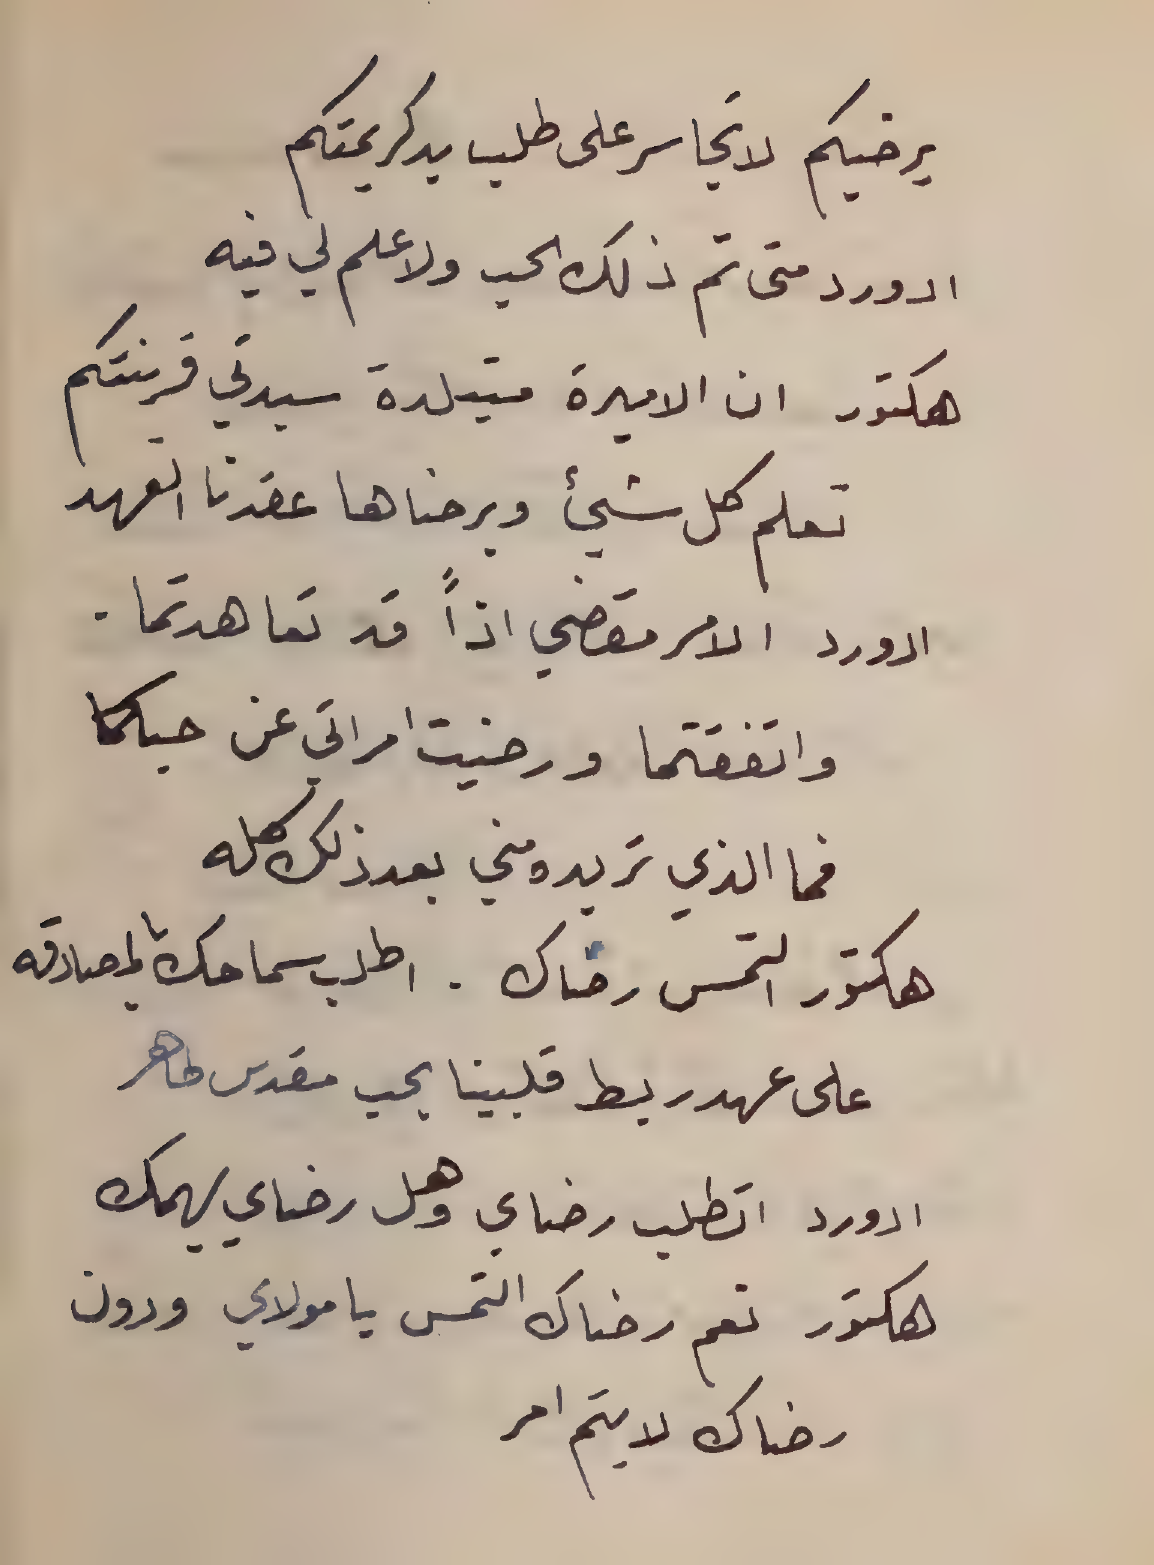 يرضيكم لا تجاسر على طلب يد كريمتكم
ادورد متى تم ذلك الحب ولا علم لي فيه
هكتور ان الاميرة متيلدة سيدتي قرينتكم
تعلم كل شيئ وبرضاها عقدنا العهد
ادورد الامر مقضي اذاً قد تعاهدتما .
واتفقتما ورضيت امراتي عن حبكما
فما الذي تريده مني بعد ذلك كله
هكتور التمس رضاك . اطلب سماحك بالمصادقه
على عهد ربط قلبينا بحب مقدس طاهر
ادورد اتطلب رضاي وهل رضاي يهمك
هكتور نعم رضاك التمس يا مولاي ودون
رضاك لا يتم امر